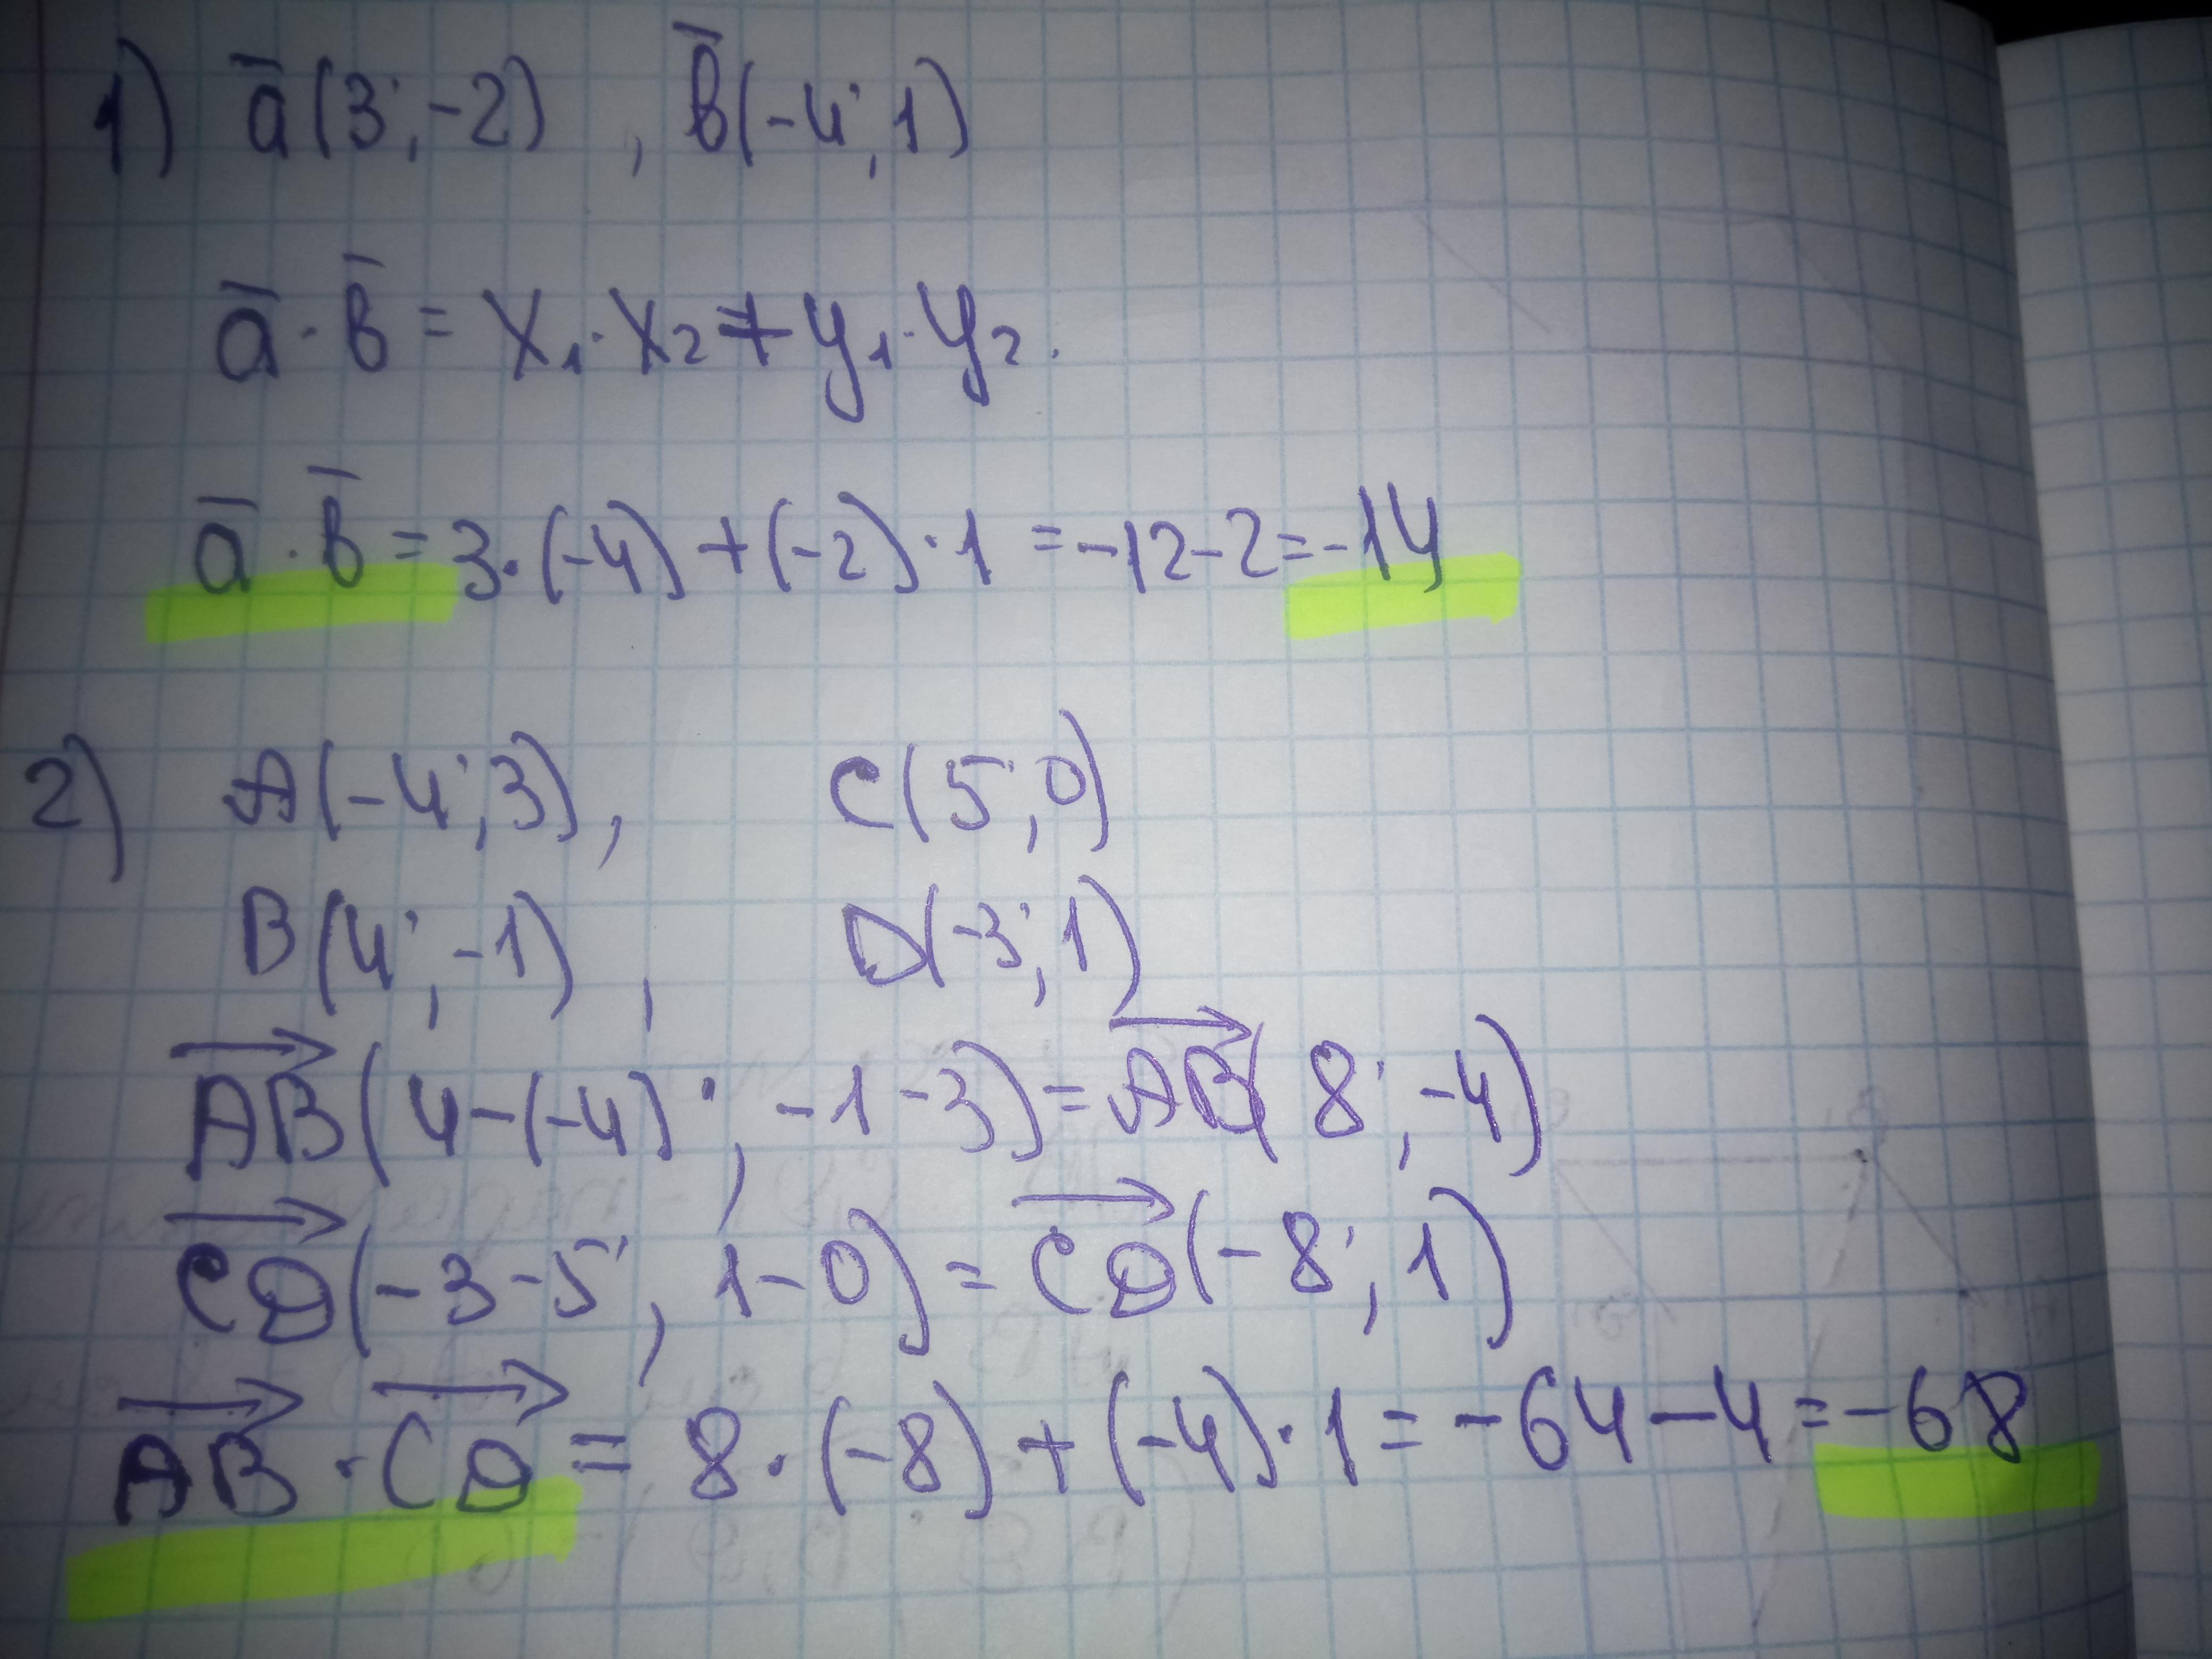 1) a̅(3; -2) , b̅(-4; 1)
a̅ · b̅ = x₁·x₂ + y₁·y₂.
a̅ · b̅ = 3·(-4) + (-2)·1 = -12-2 = -14
2) A(-4; 3), C(5; 0)
B(4; -1) , D(-3; 1)
A⃗B⃗(4-(-4); -1-3) = A⃗B⃗(8; -4)
C⃗D⃗(-3-5; 1-0) = C⃗D⃗(-8; 1)
A⃗B⃗ · C⃗D⃗ = 8·(-8) + (-4)·1 = -64-4 = -68